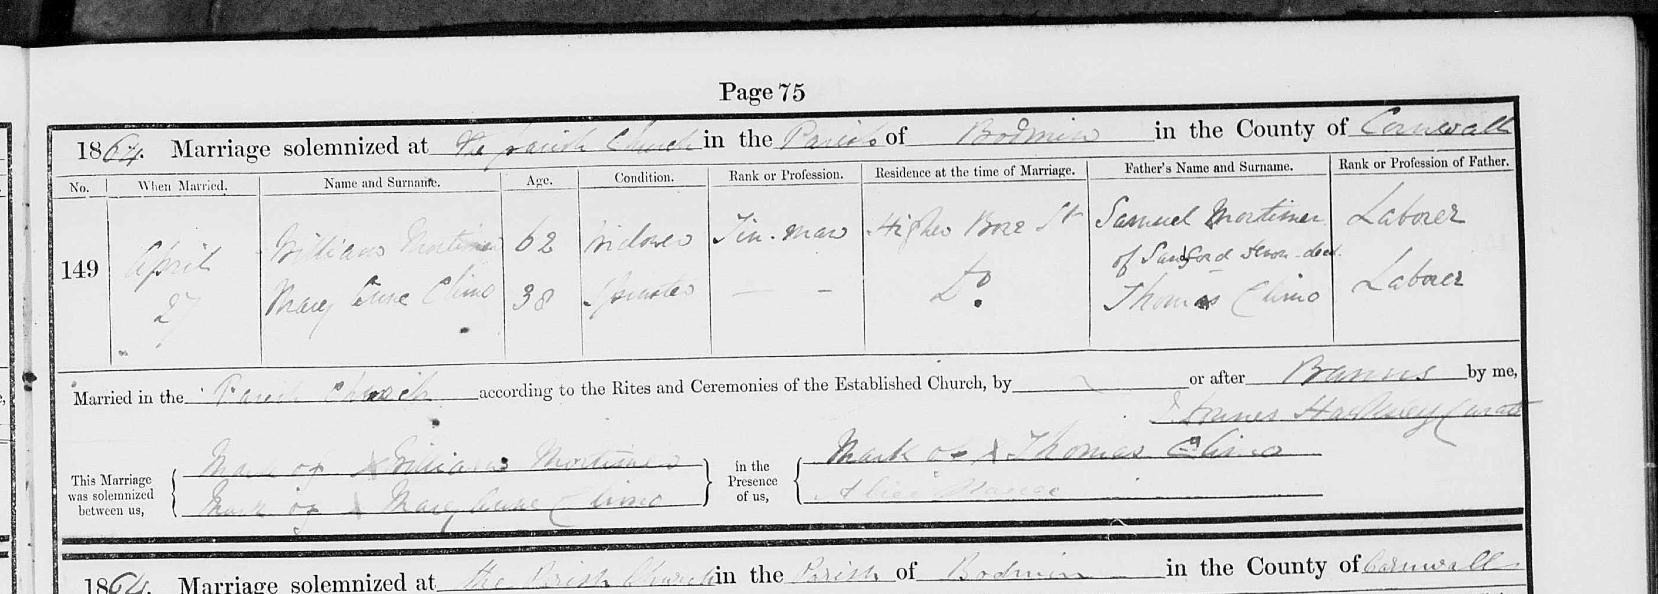 Page 75
1864. Marriage solemnized at the parish Church in the Parish of Bodmin in the County of Cornwall
No. When Married. Name and Surname. Age. Condition. Rank or Profession. Residence at the time of Marriage. Father's Name and Surname. Rank or Profession of Father.
149 April 27 William Mortimer 62 Widower Tin-man Higher Bore St Samuel Mortimer Laborer
of Sanford Devon - decd.
Mary Anne Climo 38 Spinster — - Do Thomas Climo Laborer
Married in the Parish Church according to the Rites and Ceremonies of the Established Church, by or after Banns by me,
Curate
This Marriage was solemnized between us, Mark of X William Mortimer in the Presence of us, Mark of X Thomas Climo
Mark of X Mary Anne Climo
1864. Marriage solemnized at the Parish Church in the Parish of Bodmin in the County of Cornwall